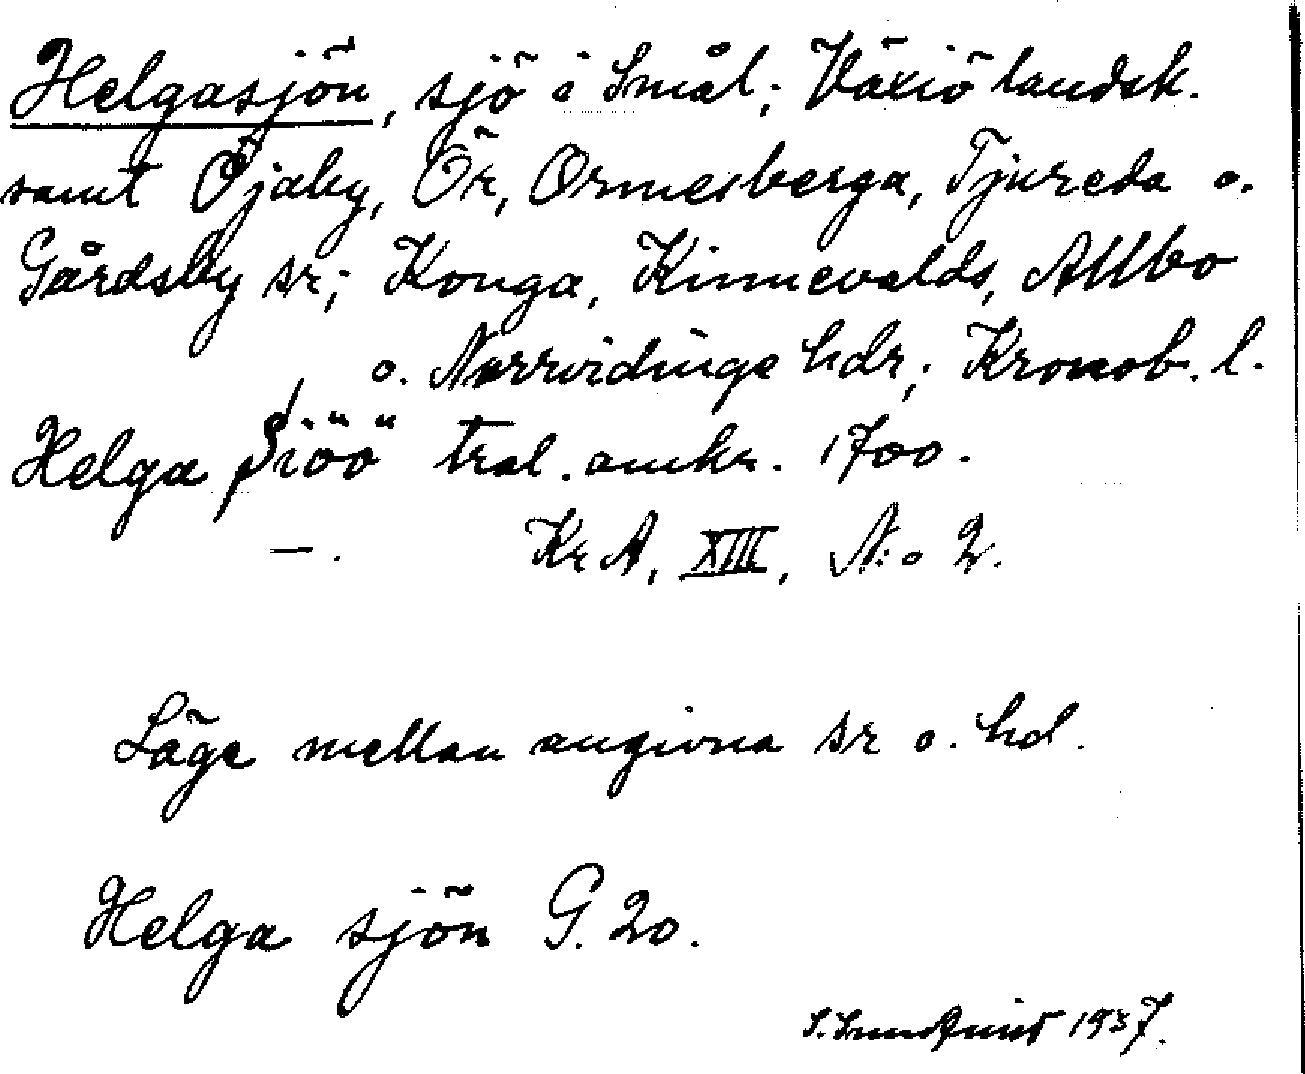 Helgasjön, sjö i Smål; Växiö landsk.
samt Öjaby, Ör, Ormesberga, Tjureda o.
Gårdsby sr; Konga, Kinnevalds, Allbo
o. Norrvidinge hdr; Kronob. l.
Helga Siöö tral. omkr. 1700.
— . KrA, XIII, N:o 2.
Läge mellan angivna sr o. hd.
Helga sjön G. 20.
1937.